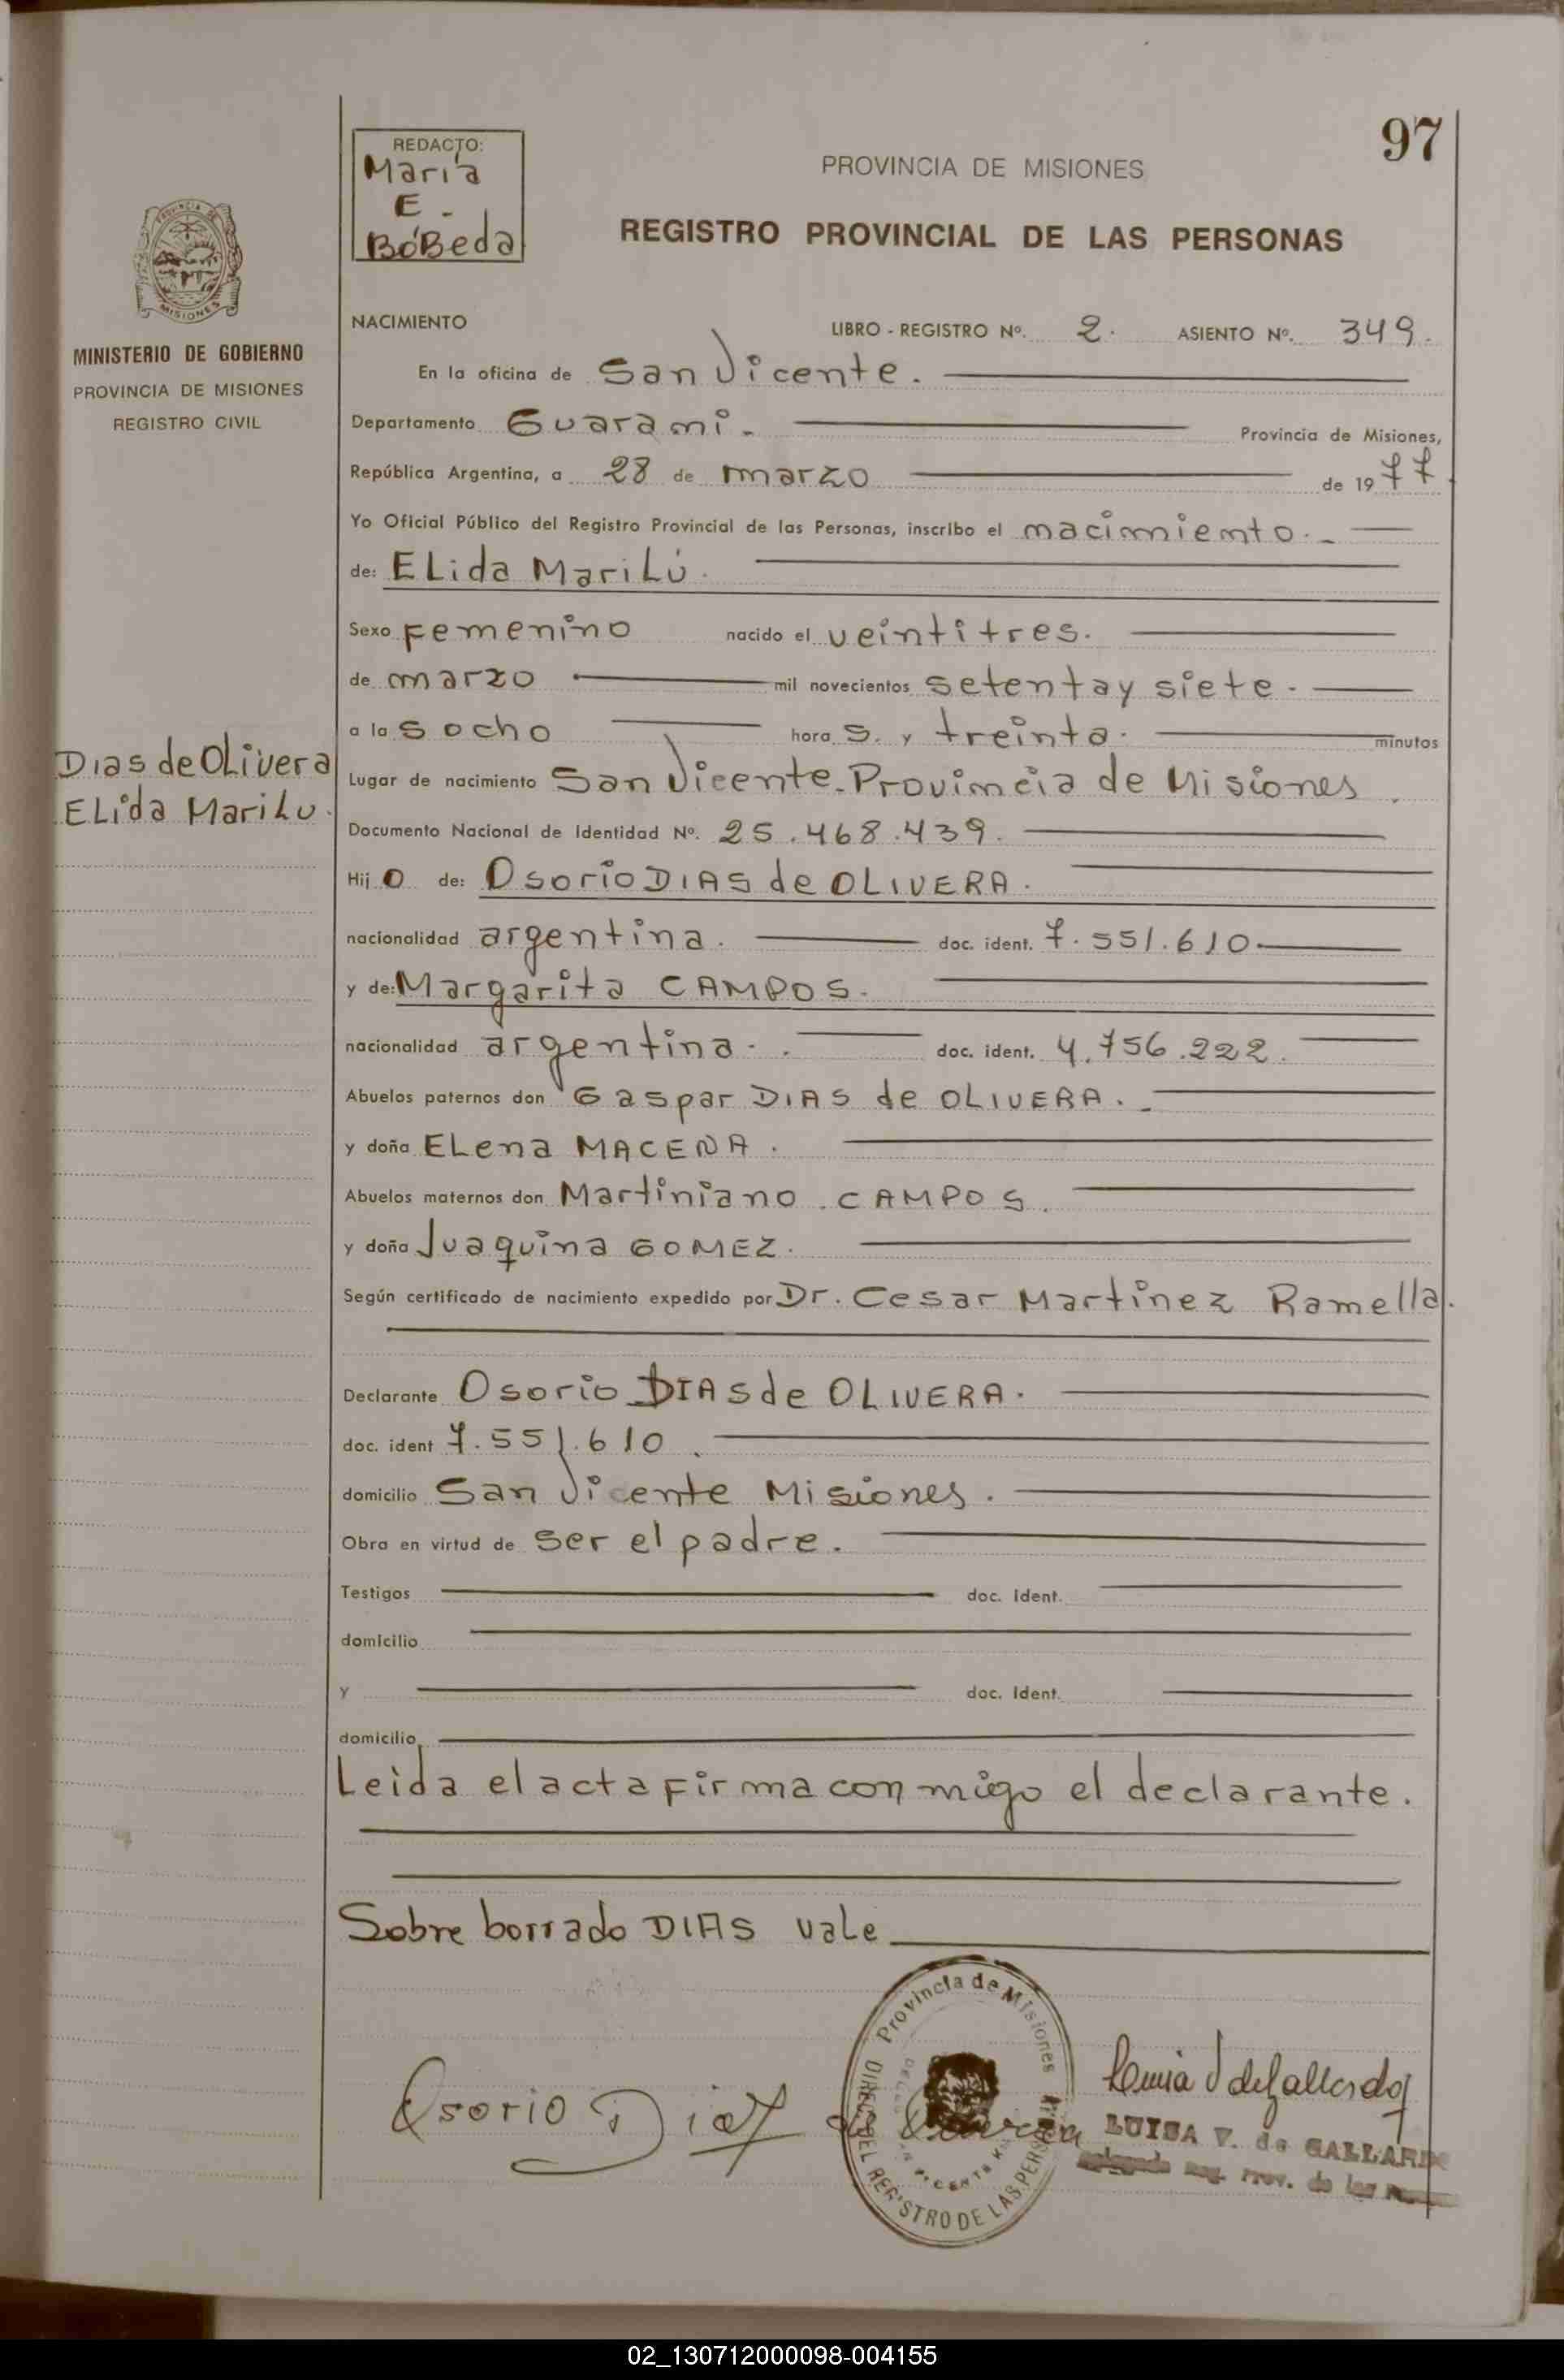 97
REDACTO:
María
E.
BóBeda
PROVINCIA DE MISIONES
REGISTRO PROVINCIAL DE LAS PERSONAS
PROVINCIA DE
MISIONES
MINISTERIO DE GOBIERNO
PROVINCIA DE MISIONES
REGISTRO CIVIL
NACIMIENTO LIBRO - REGISTRO Nº. 2. ASIENTO Nº. 349.
En la oficina de San Vicente.
Departamento Guarami. Provincia de Misiones,
República Argentina, a 28 de marzo de 1977
Yo Oficial Público del Registro Provincial de las Personas, inscribo el macimiento.
de: ELida MariLú.
Sexo Femenino nacido el veintitres.
de marzo mil novecientos setenta y siete.
a las ocho horas. y treinta. minutos
Dias de OLivera
ELida MariLu.
Lugar de nacimiento San Vicente. Provincia de Misiones.
Documento Nacional de Identidad Nº. 25.468.439.
Hijo de: Osorio DIAS de OLIVERA.
nacionalidad argentina. doc. ident. 7.551.610.
y de: Margarita CAMPOS.
nacionalidad argentina. doc. ident. 4.756.222.
Abuelos paternos don Gaspar DIAS de OLIVERA.
y doña ELena MACENA.
Abuelos maternos don Martiniano CAMPOS.
y doña Juaquina GOMEZ.
Según certificado de nacimiento expedido por Dr. Cesar Martinez Ramella.
Declarante Osorio DIAS de OLIVERA.
doc. ident 7.551.610.
domicilio San Vicente Misiones.
Obra en virtud de ser el padre.
Testigos doc. ident.
domicilio
y doc. ident.
domicilio
Leida el acta firma conmigo el declarante.
Sobre borrado DIAS vale
Provincia de Misiones
REGISTRO DE LAS PERS
Osorio Diaz de
Luisa V de Gallardo
LUISA V. de GALLARDO
Prov. de las
02_130712000098-004155